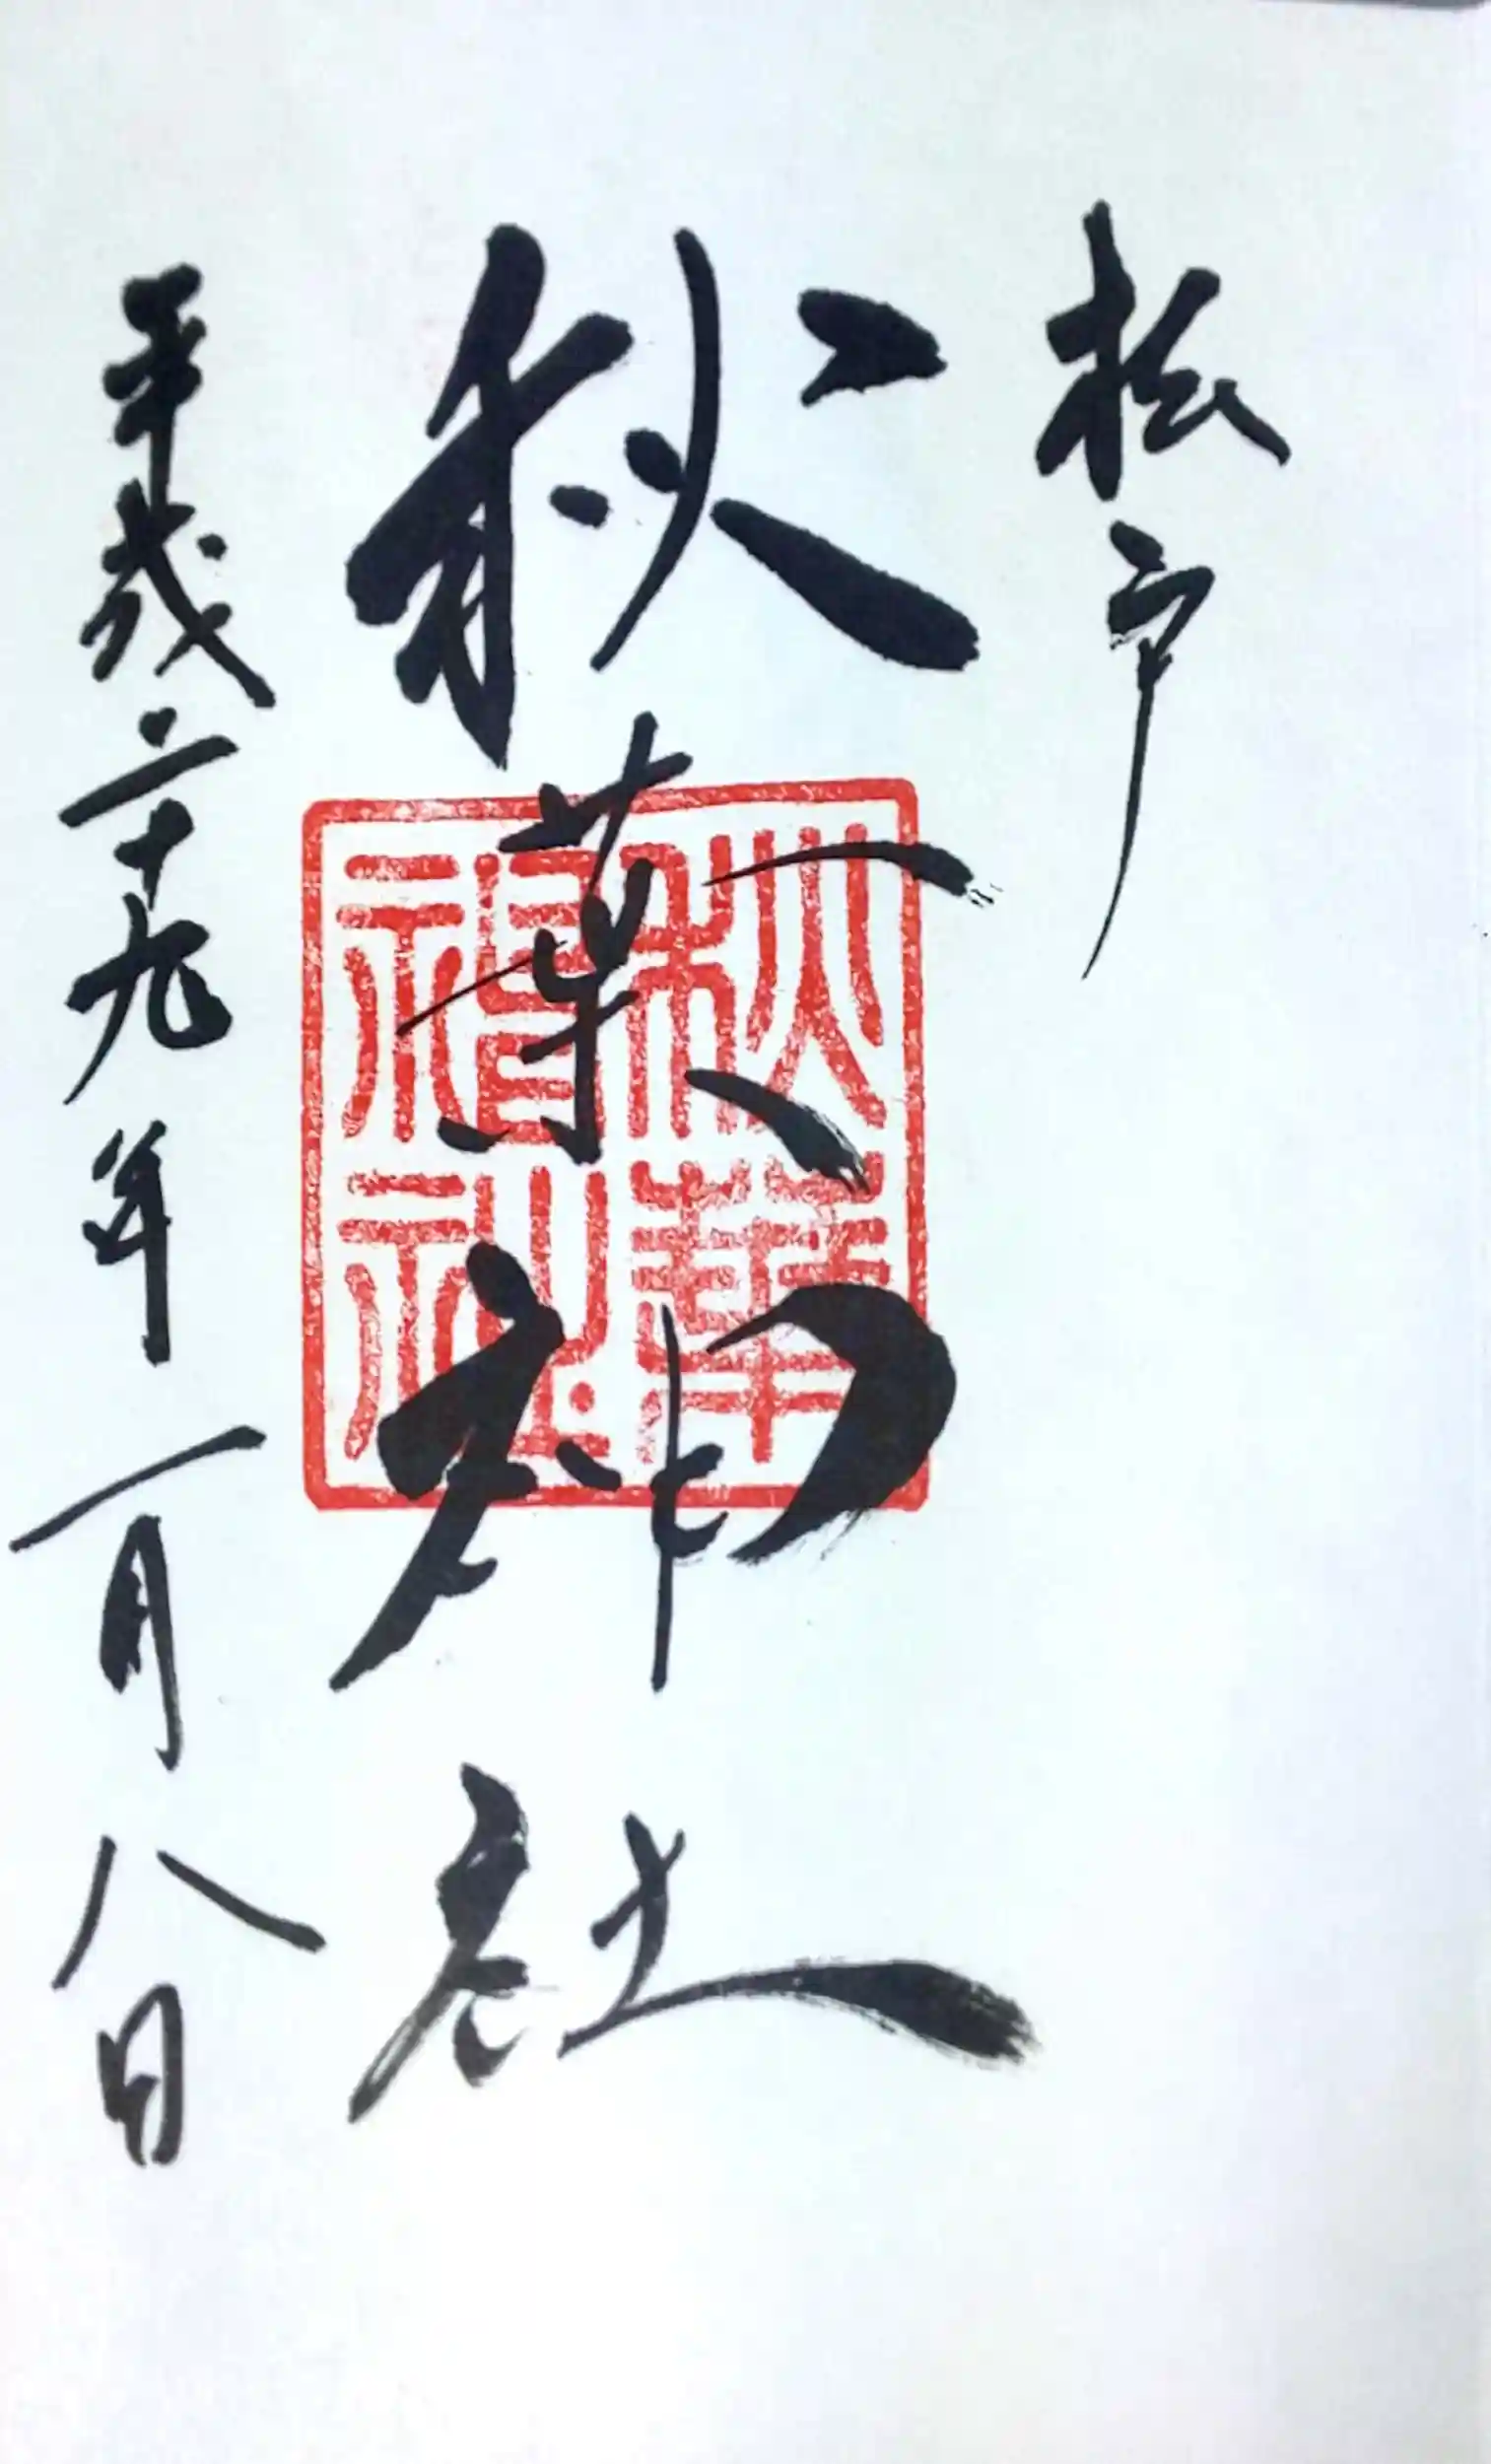 松戸
秋葉神社
平成二十九年一月八日
秋葉神社